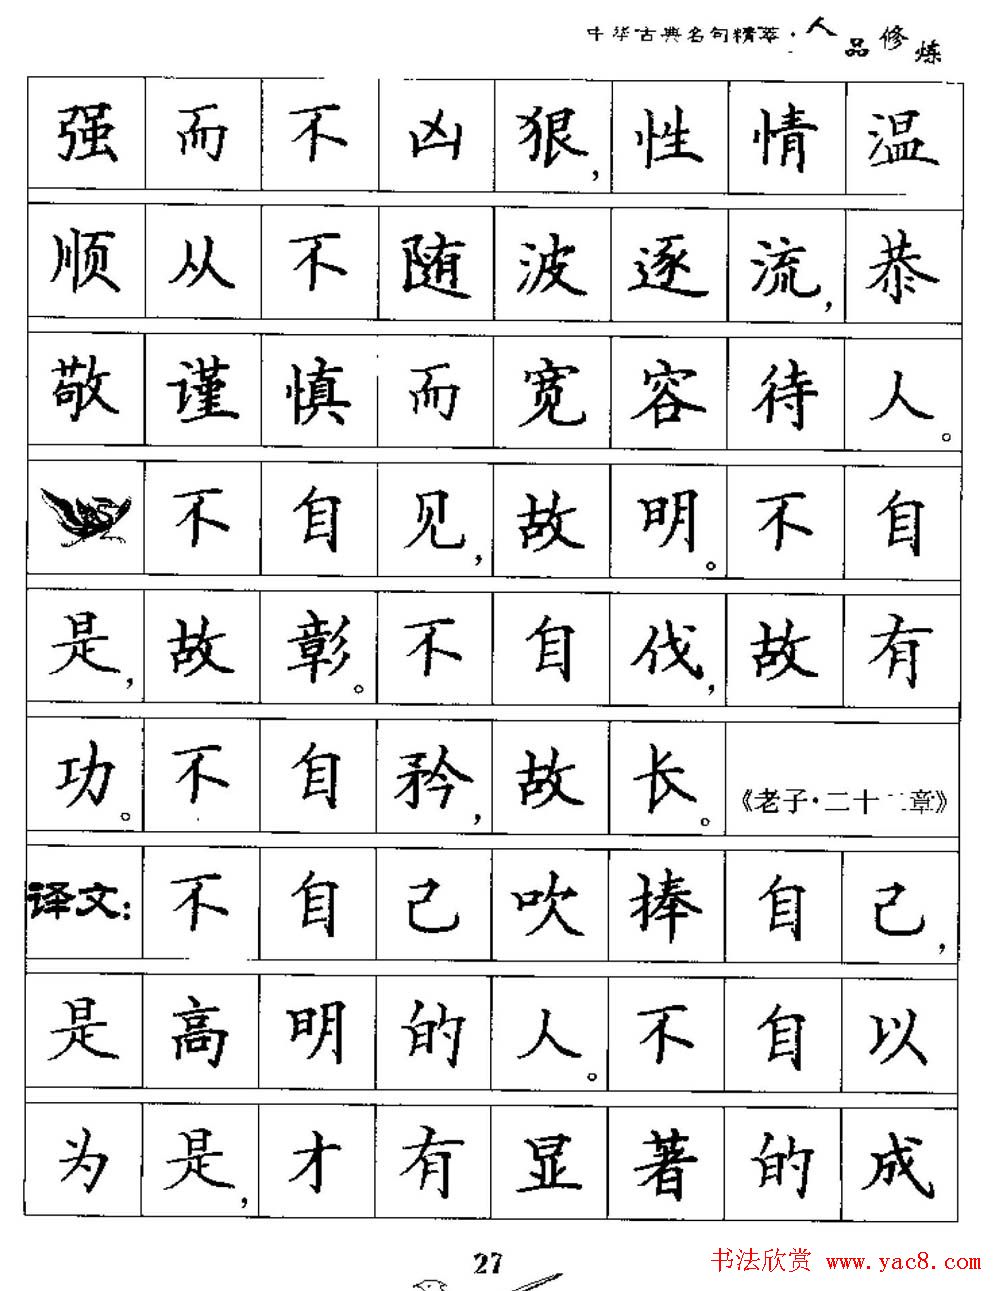 中华古典名句精萃·人品修炼
强而不凶狠,性情温
顺从不随波逐流,恭
敬谨慎而宽容待人。
不自见,故明。不自
是,故彰。不自伐,故有
功。不自矜,故长。《老子·二十二章》
译文:不自己吹捧自己,
是高明的人。不自以
为是,才有显著的成
27
书法欣赏 www.yac8.com